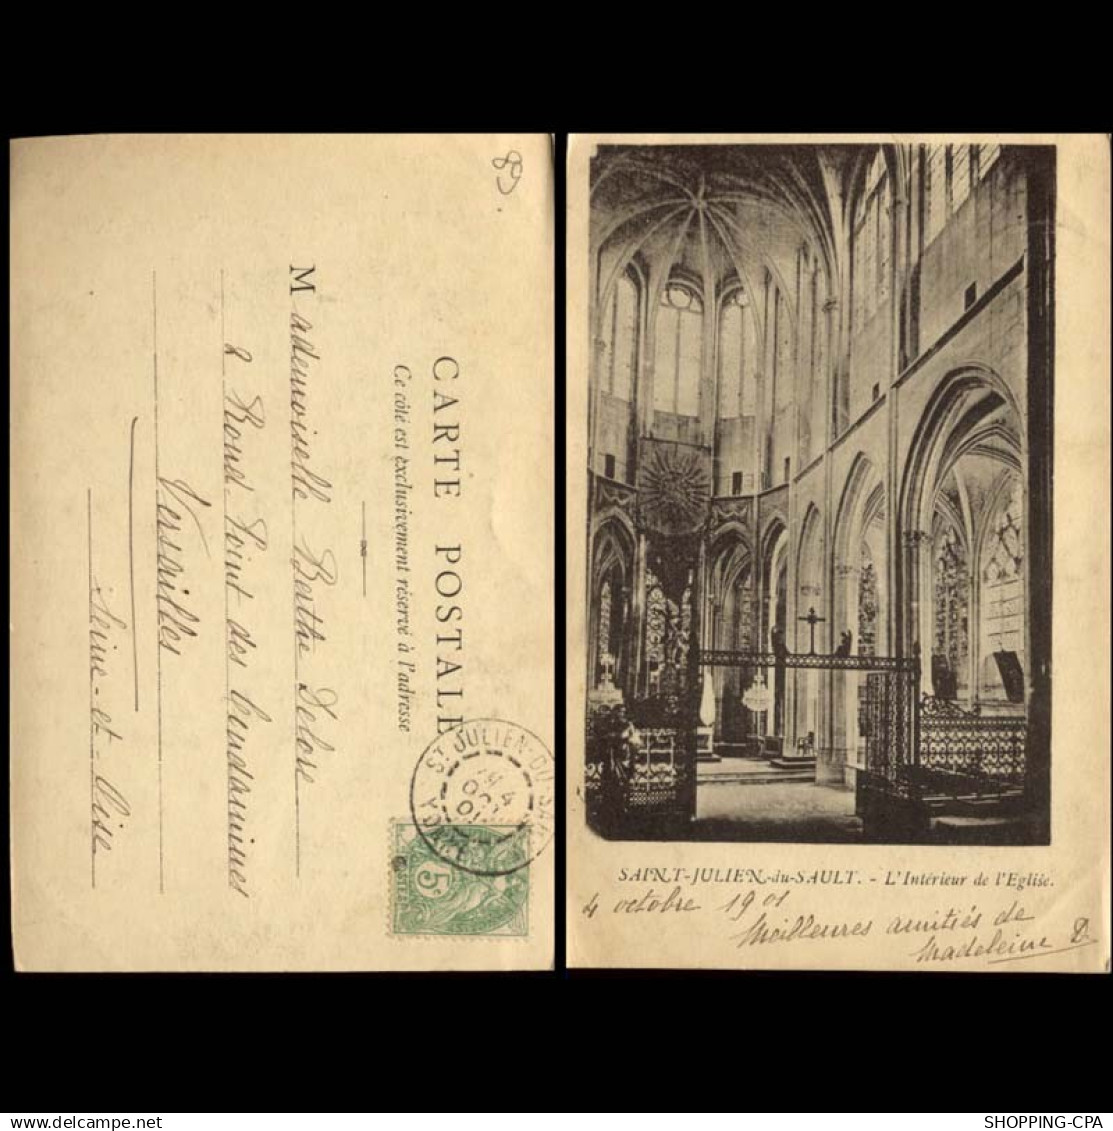 89
CARTE POSTALE
Ce côté est exclusivement réservé à l'adresse
Mademoiselle Berthe Delors
2 Rond Point des Condamines
Versailles
Seine-et-Oise
ST JULIEN-DU-SAULT
4
OCT
01
YONNE
5c
SAINT-JULIEN-du-SAULT. - L'Intérieur de l'Eglise.
4 octobre 1901
Meilleures amitiés de
Madeleine D.
SHOPPING-CPA